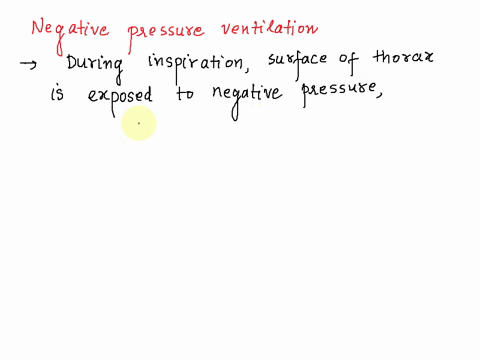 Negative pressure ventilation
→ During inspiration, surface of thorax
is exposed to negative pressure,